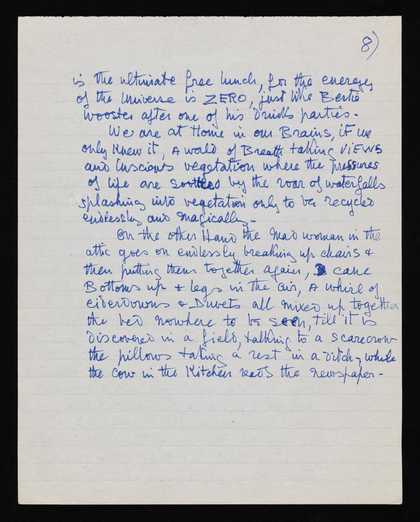 8)
is the ultimate free lunch, for the energy
of the Universe is ZERO, just like Bertie
Wooster after one of his drinks parties.
We are at Home in our Brains, if we
only knew it, A world of Breath taking VIEWS
and luscious vegetation where the pressures
of life are by the roar of waterfalls
splashing into vegetation only to be recycled
endlessly and magically.
On the other Hand the mad woman in the
attic goes on endlessly breaking up chairs &
then putting them together again, cane
Bottoms up & legs in the air, A whirl of
eiderdowns & Duvets all mixed up together
the bed nowhere to be seen, till it is
discovered in a field, talking to a scarecrow
the pillows taking a rest in a ditch, while
the cow in the Kitchen reads the newspaper -